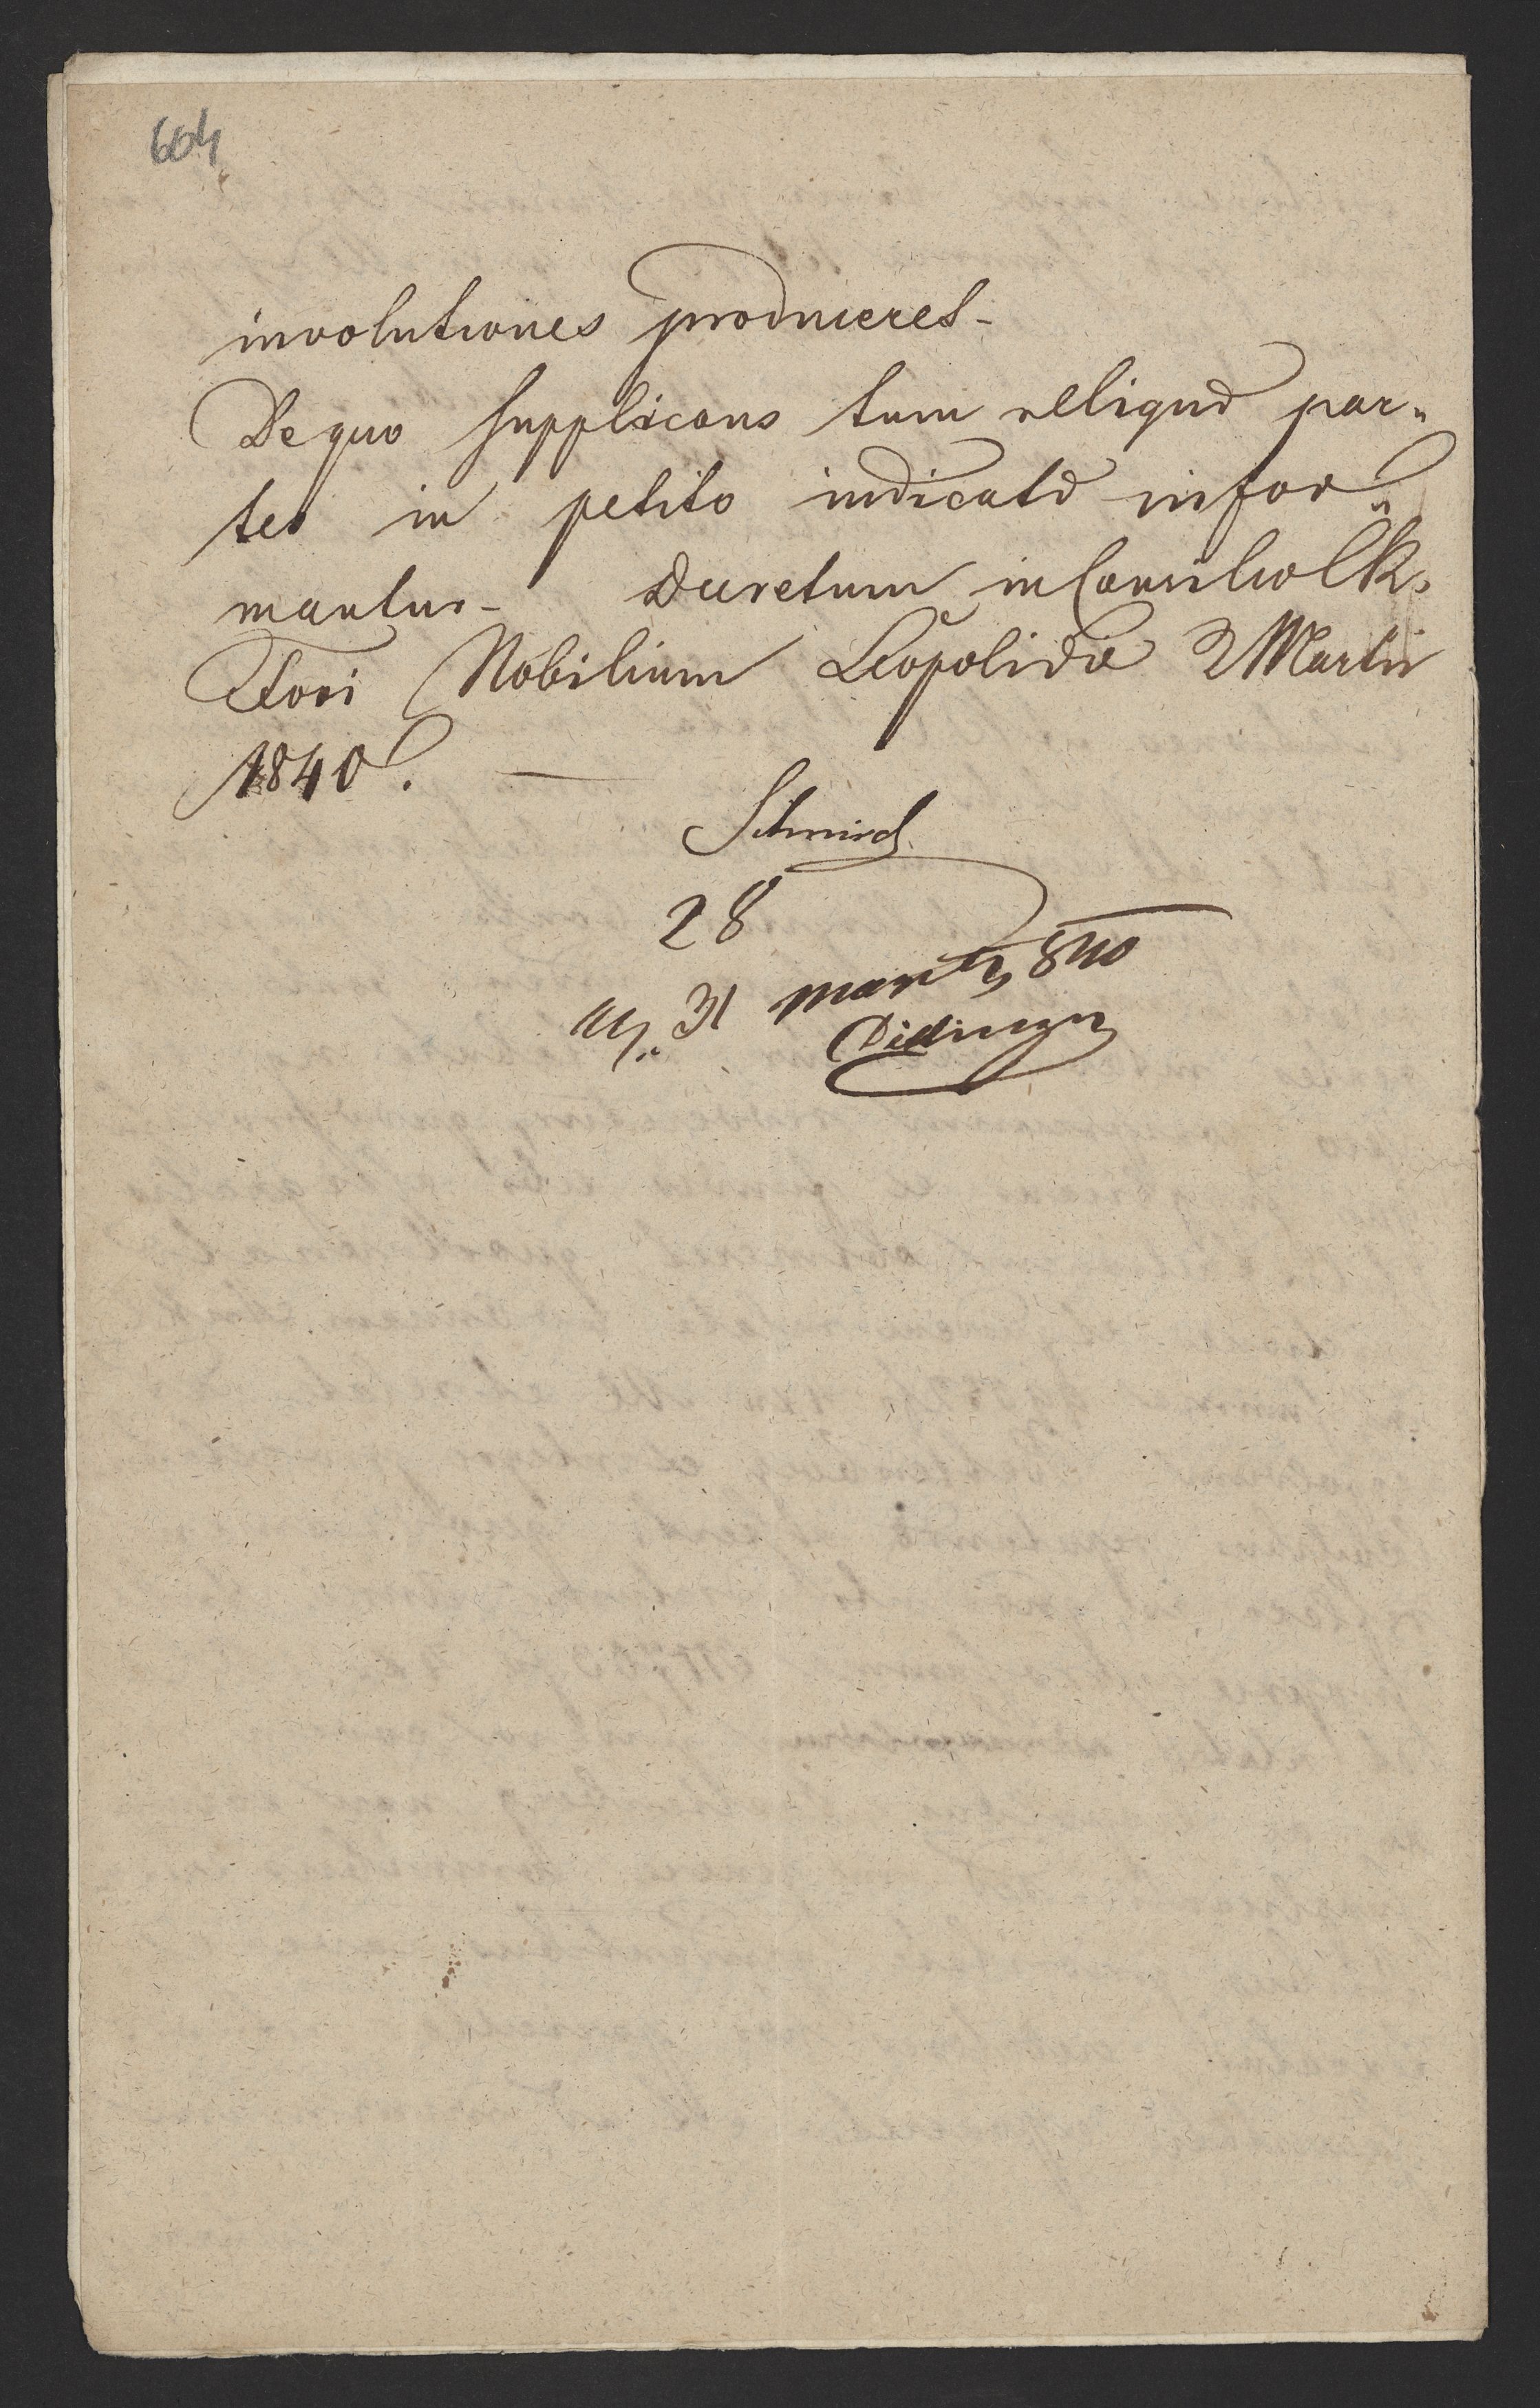 604
involutiones produceret-
De quo supplicans tum reliquæ par„
tes in petito indicatæ infor„
mantur- Decretum in Consilio CR.
Fori Nobilium Leopoli die 2 Martii
1840.
Schmid
28
31 Martz 840